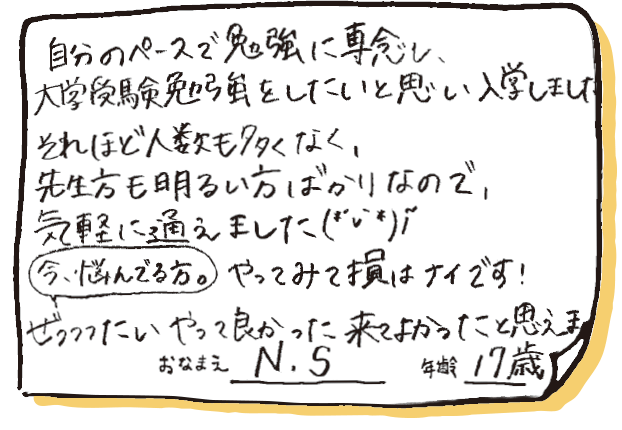 自分のペースで勉強に専念し、
大学受験勉強をしたいと思い入学しました
それほど人数も多くなく、
先生方も明るい方ばかりなので、
気軽に通えました(*'ー'*)ﾉ
今、悩んでる方。やってみて損はナイです!
ぜっっったいやって良かった来てよかったと思えま
おなまえ N.S 年齢 17歳